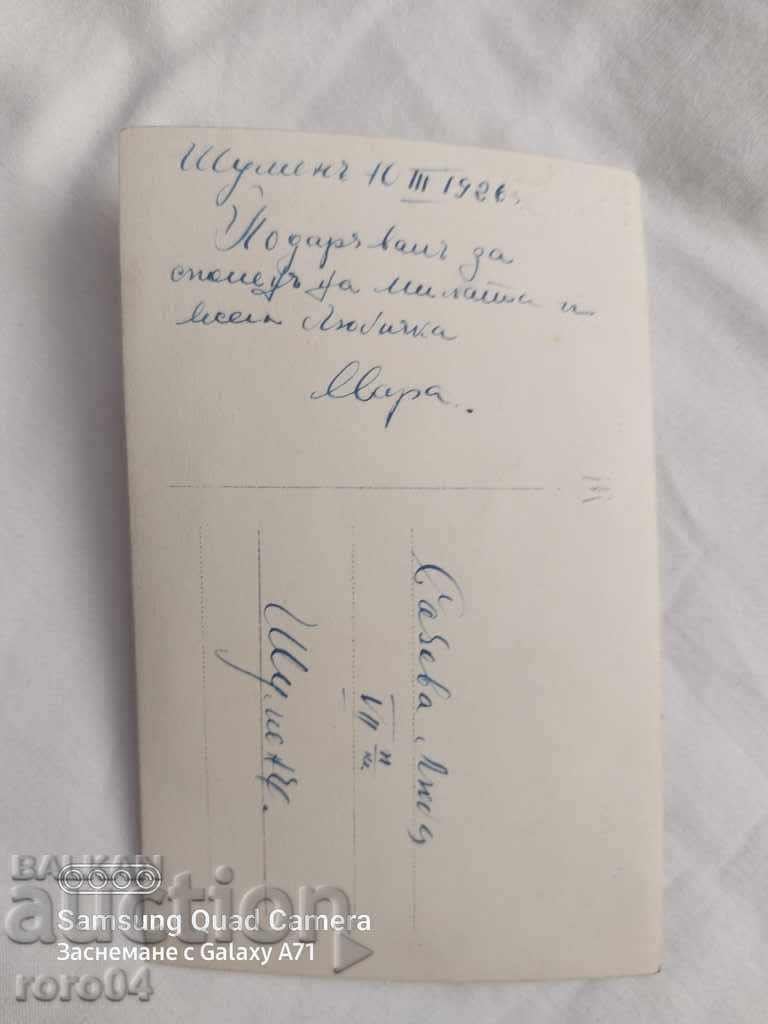 Шуменъ 10 III 1926
Подарявамъ за
споменъ на милата и
Любичка
Мара.
Сабева Люб
VII
Шуменъ.
BALKAN
auction
Samsung Quad Camera
Заснемане с Galaxy A71
roro04